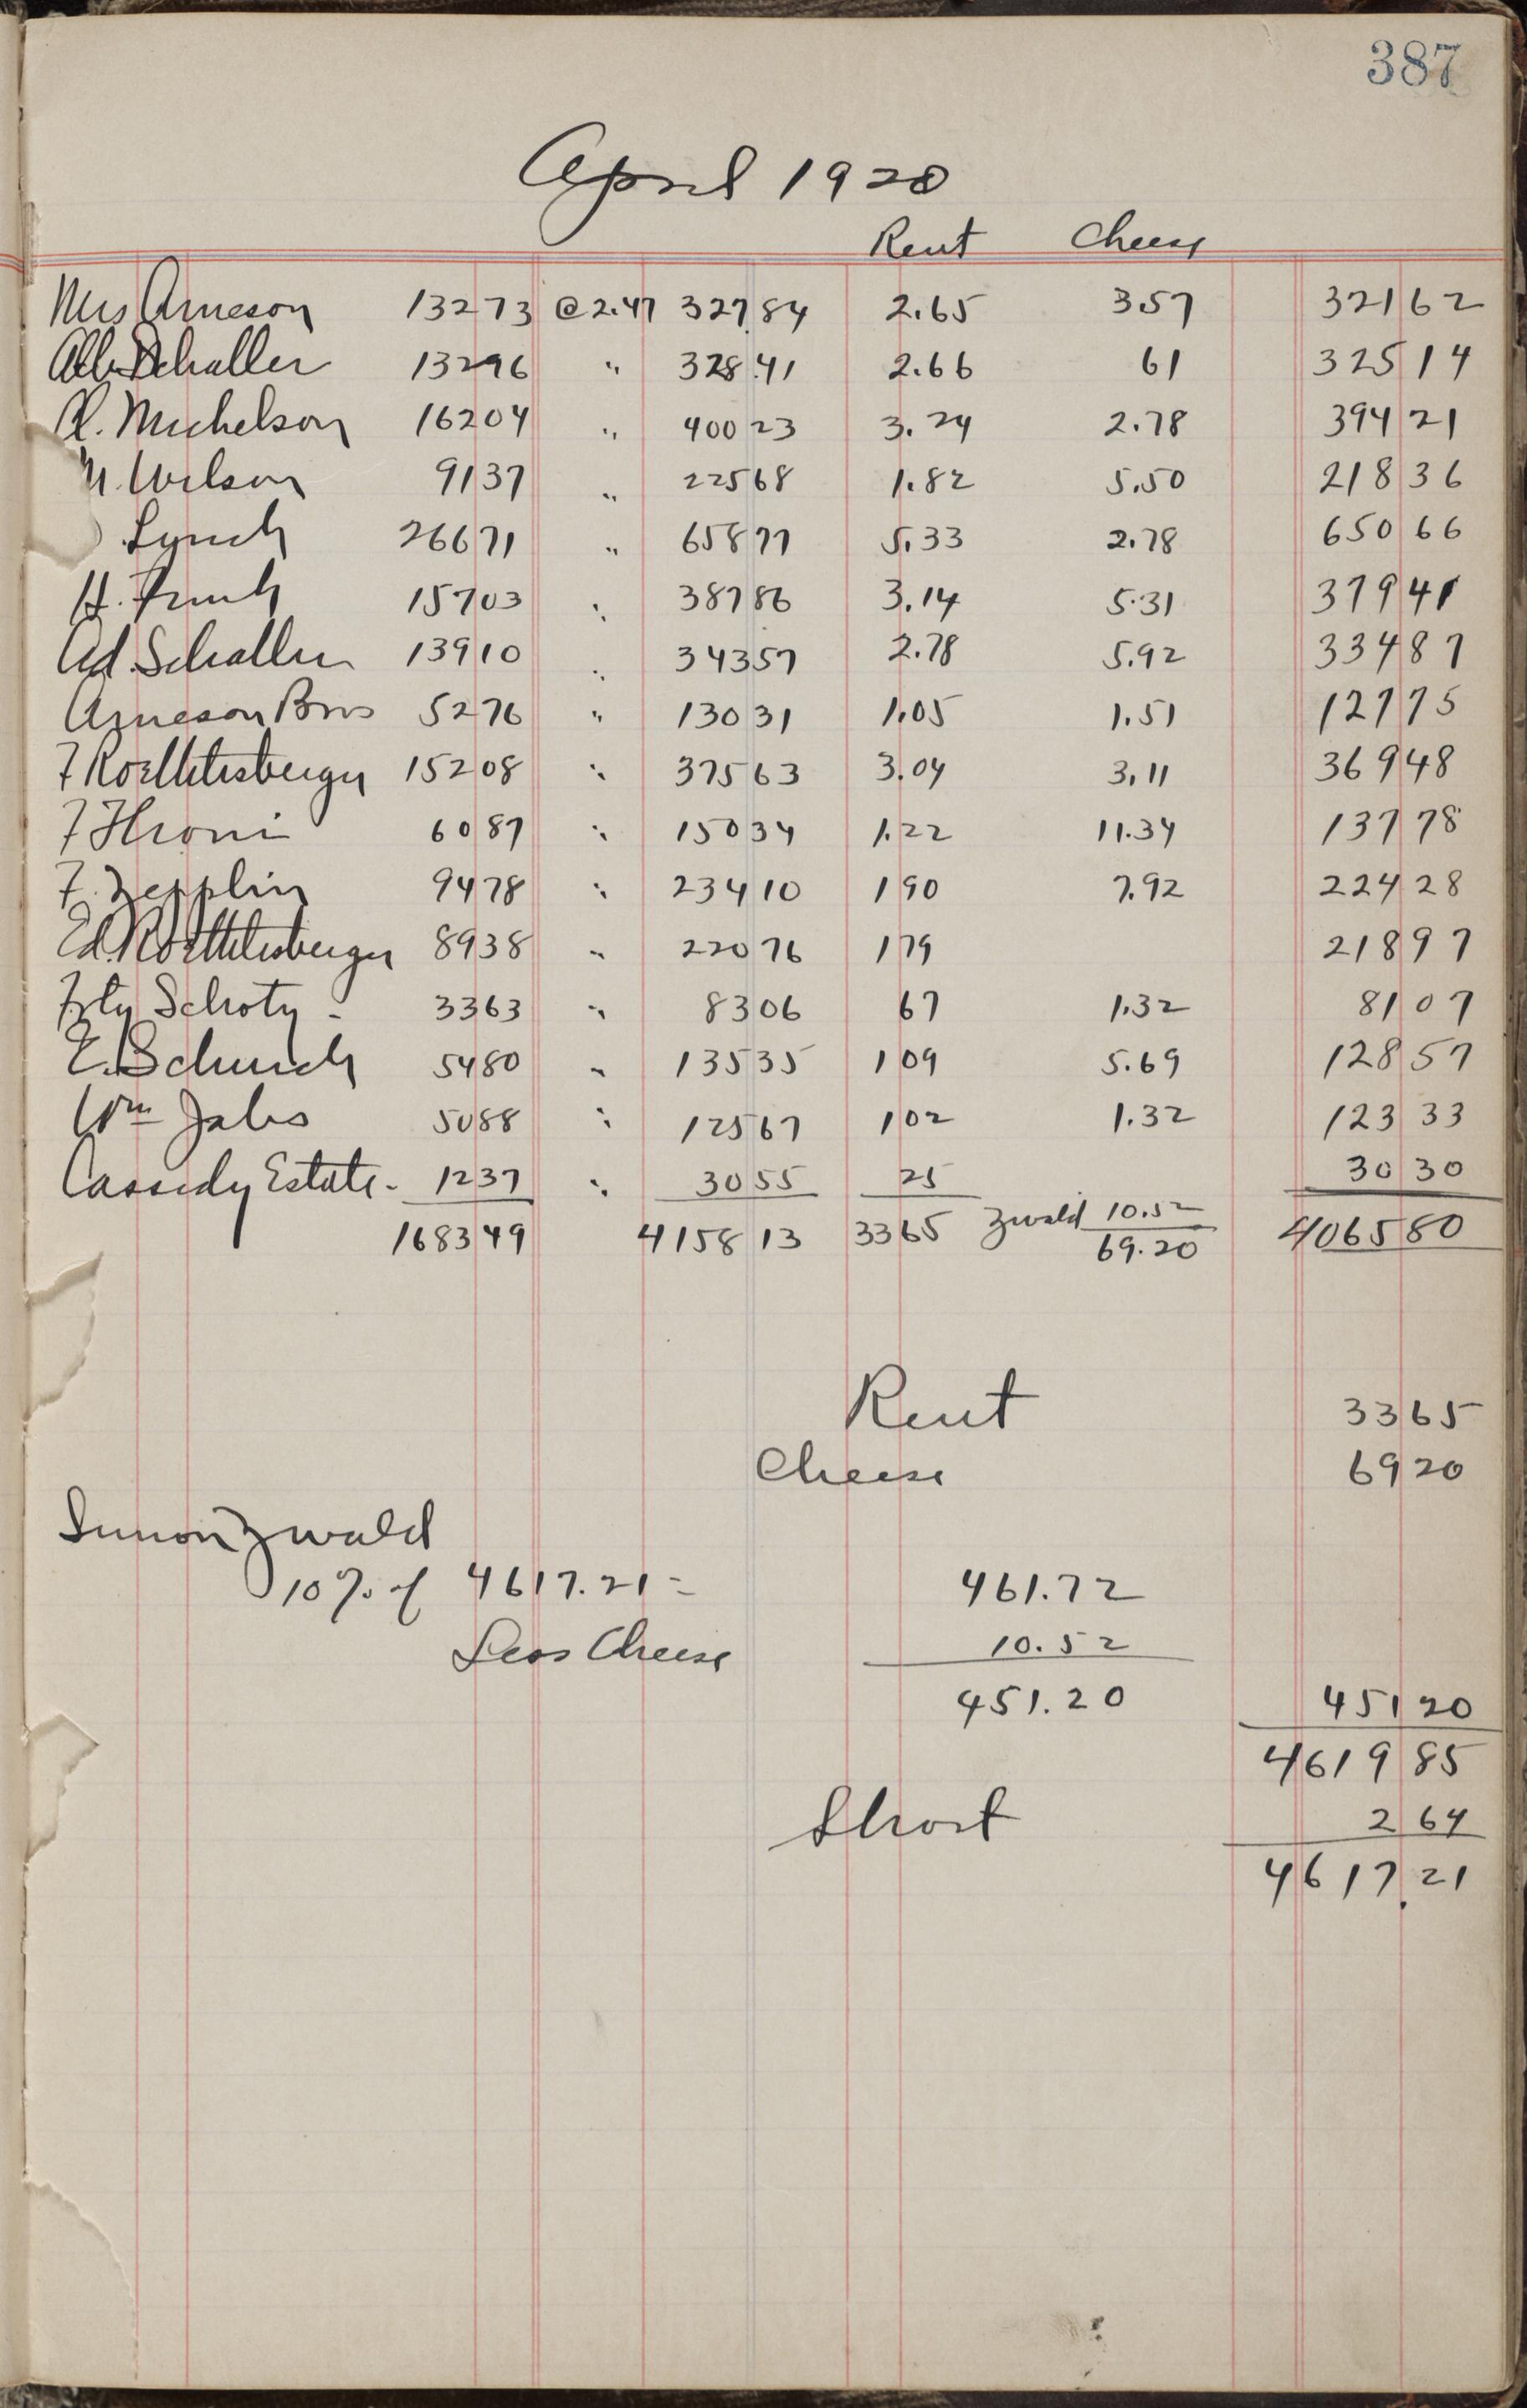 387
April 1920
Rent Cheese
Mrs Arneson 13273 @ 2.47 327.84 2.65 3.57 321 62
Alb Schaller 13296 " 328.41 2.66 61 325 14
A. Michelson 16204 " 400 23 3.24 2.78 394 21
M. Wilson 9137 " 225 68 1.82 5.50 218 36
Lynch 26671 " 658 77 5.33 2.78 650 66
H. Frunk 15703 " 387 86 3.14 5.31 379 41
Ad. Schaller 13910 " 343 57 2.78 5.92 334 87
Arneson Bros 5276 " 130 31 1.05 1.51 127 75
F Roethlisberger 15208 " 375 63 3.04 3.11 369 48
F Hroni 6087 " 150 34 1.22 11.34 137 78
F. Zepplin 9478 " 234 10 1 90 7.92 224 28
Ed. Roethlisberger 8938 " 220 76 1 79 218 97
Schoty - 3363 " 83 06 67 1.32 81 07
E. Schurch 5480 " 135 35 1 09 5.69 128 57
Wm Jabs 5088 " 125 67 1 02 1.32 123 33
Cassidy Estate - 1237 " 30 55 25 30 30
168349 4158 13 33 65 Zwald 10.52 4065 80
69.20
Rent 33 65
Cheese 69 20
Simon Zwald
10% of 4617.21 = 461.72
Less Cheese 10.52
451.20 451 20
4619 85
Short 2 64
4617.21